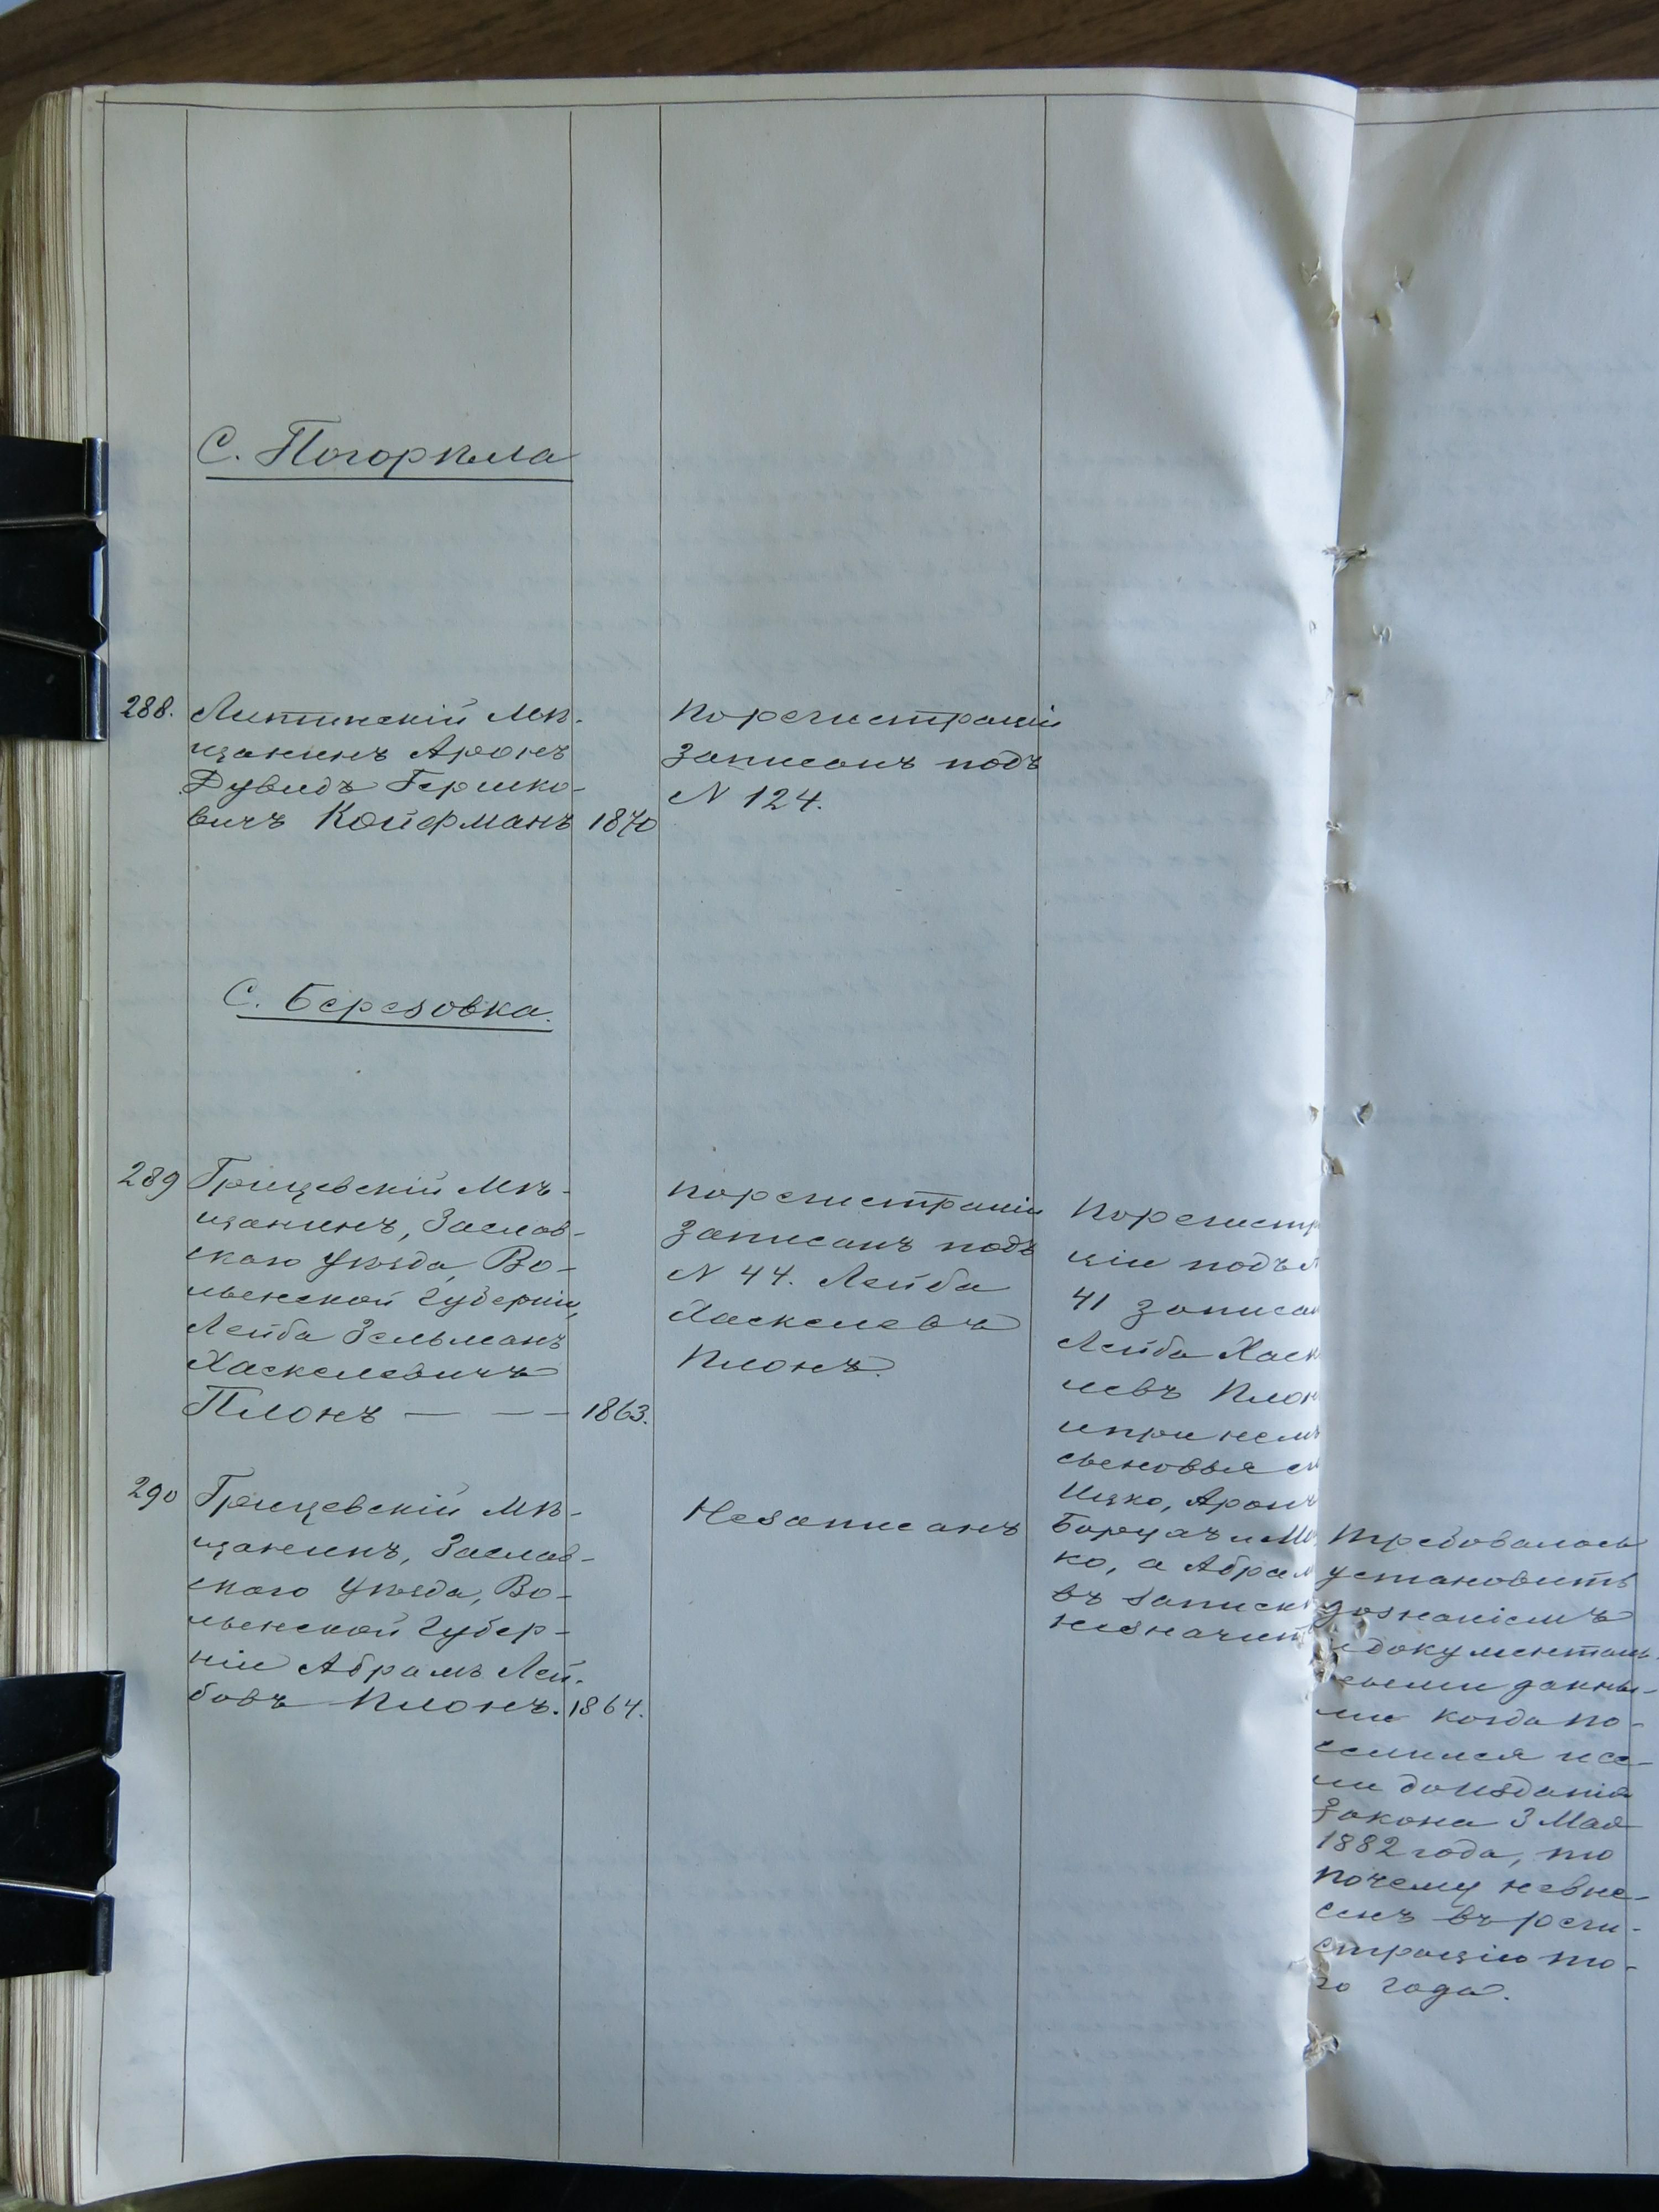 С. Погорѣла
288.
Литинскій мѣ-
щанинъ Аронъ
Дувидъ Гершко-
вичъ Койфманъ
1870
По регистраціи
записанъ подъ
N 124.
С. Березовка.
289
Грицевскій мѣ-
щанинъ, Заслав-
скаго уѣзда, Во-
лынской губерніи,
Лейба Зельманъ
Хаскелевичъ
Плонъ — — —
1863.
По регистраціи
записанъ подъ
N 44. Лейба
Хаскелевъ
Плонъ.
По регистр
ціи подъ N
41 записан
Лейба Хаск
левъ Плон
и при немъ
сыновья
Ицко, Аронъ
Борухъ и Мо
ко, а Абрам
въ записк
незначит
290
Грицевскій мѣ-
щанинъ, Заслав-
скаго уѣзда, Во-
лынской губер-
ніи Абрамъ Лей-
бовъ Плонъ.
1864.
Незаписанъ
Требовалось
установить
дознаніемъ
и документаль-
ными данны-
ми когда по-
селился и ес-
ли до изданія
закона 3 Мая
1882 года, то
почему невне-
сенъ въ реги-
страцію то-
го года.